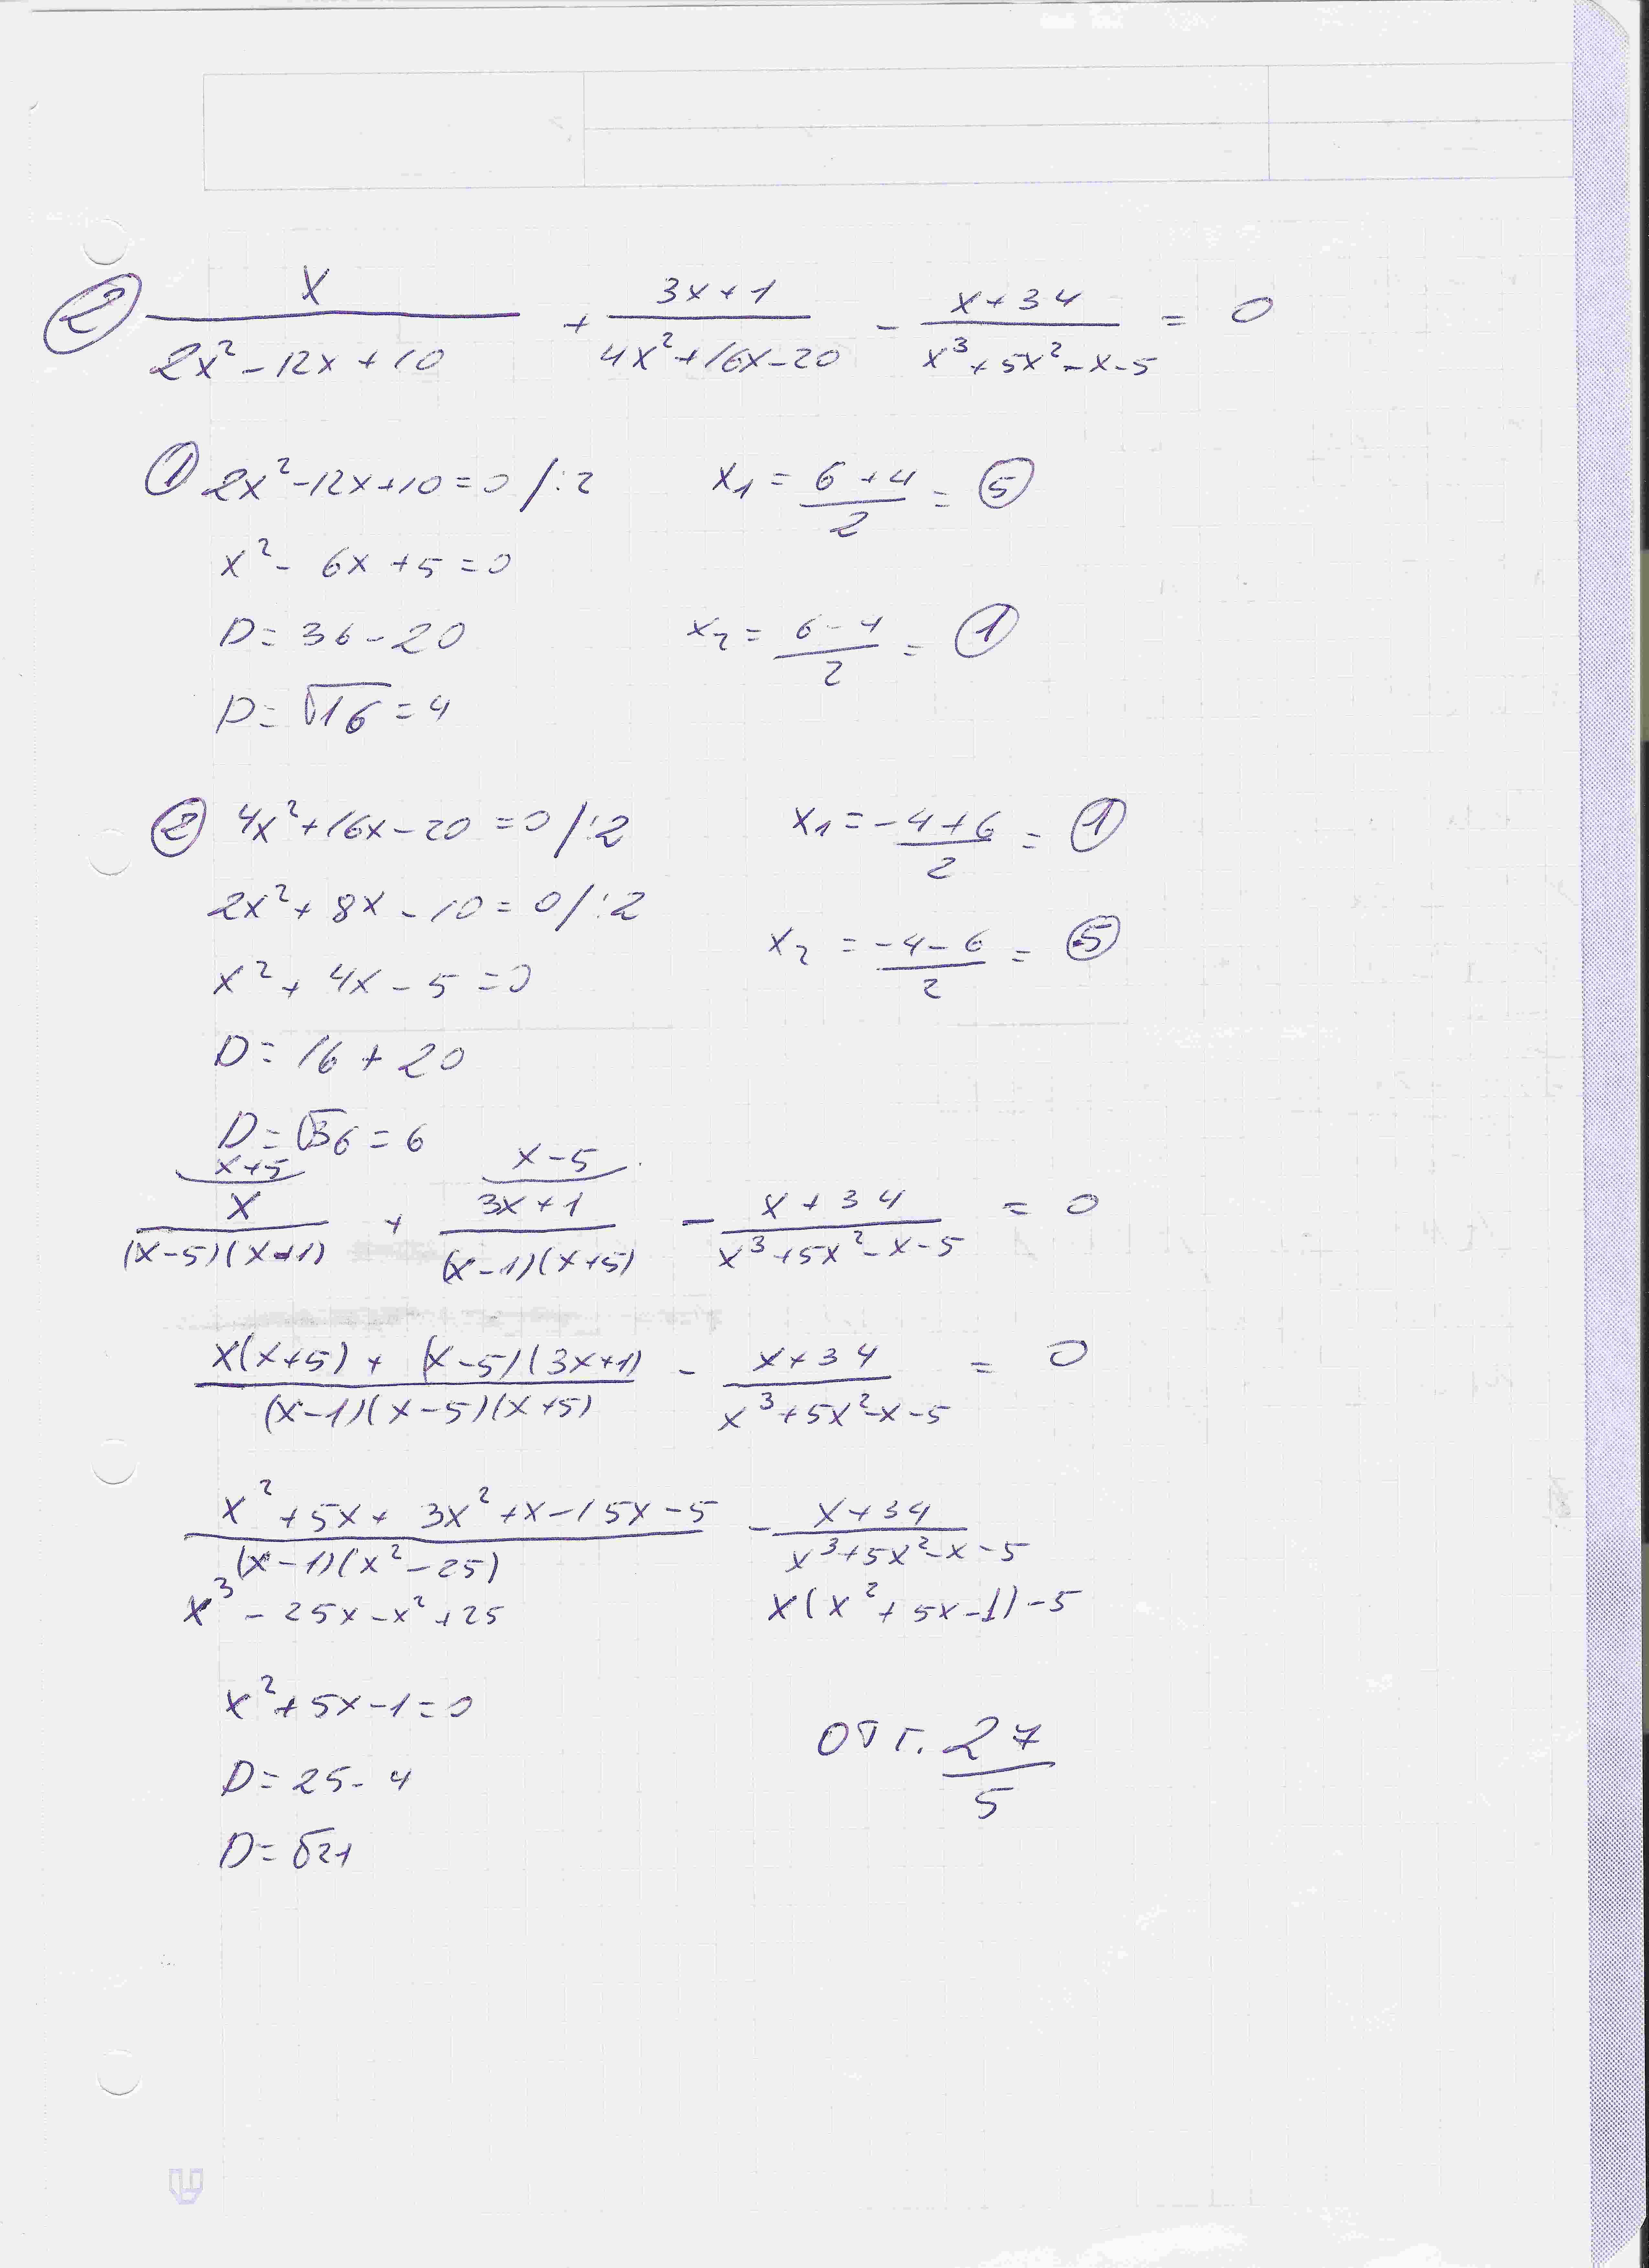 ② x/(2x² - 12x + 10) + (3x+1)/(4x² + 16x - 20) - (x+34)/(x³ + 5x² - x - 5) = 0
① 2x² - 12x + 10 = 0 /:2
x² - 6x + 5 = 0
D = 36 - 20
D = √16 = 4
x₁ = (6+4)/2 = ⑤
x₂ = (6-4)/2 = ①
② 4x² + 16x - 20 = 0 /:2
2x² + 8x - 10 = 0 /:2
x² + 4x - 5 = 0
D = 16 + 20
D = √36 = 6
x₁ = (-4+6)/2 = ①
x₂ = (-4-6)/2 = (-5)
x+5 x-5
x/((x-5)(x-1)) + (3x+1)/((x-1)(x+5)) - (x+34)/(x³ + 5x² - x - 5) = 0
(x(x+5) + (x-5)(3x+1))/((x-1)(x-5)(x+5)) - (x+34)/(x³ + 5x² - x - 5) = 0
(x² + 5x + 3x² + x - 15x - 5)/((x-1)(x² - 25)) - (x+34)/(x³ + 5x² - x - 5)
x³ - 25x - x² + 25 x(x² + 5x - 1) - 5
x² + 5x - 1 = 0
D = 25 - 4
D = √21
отг. 27/5